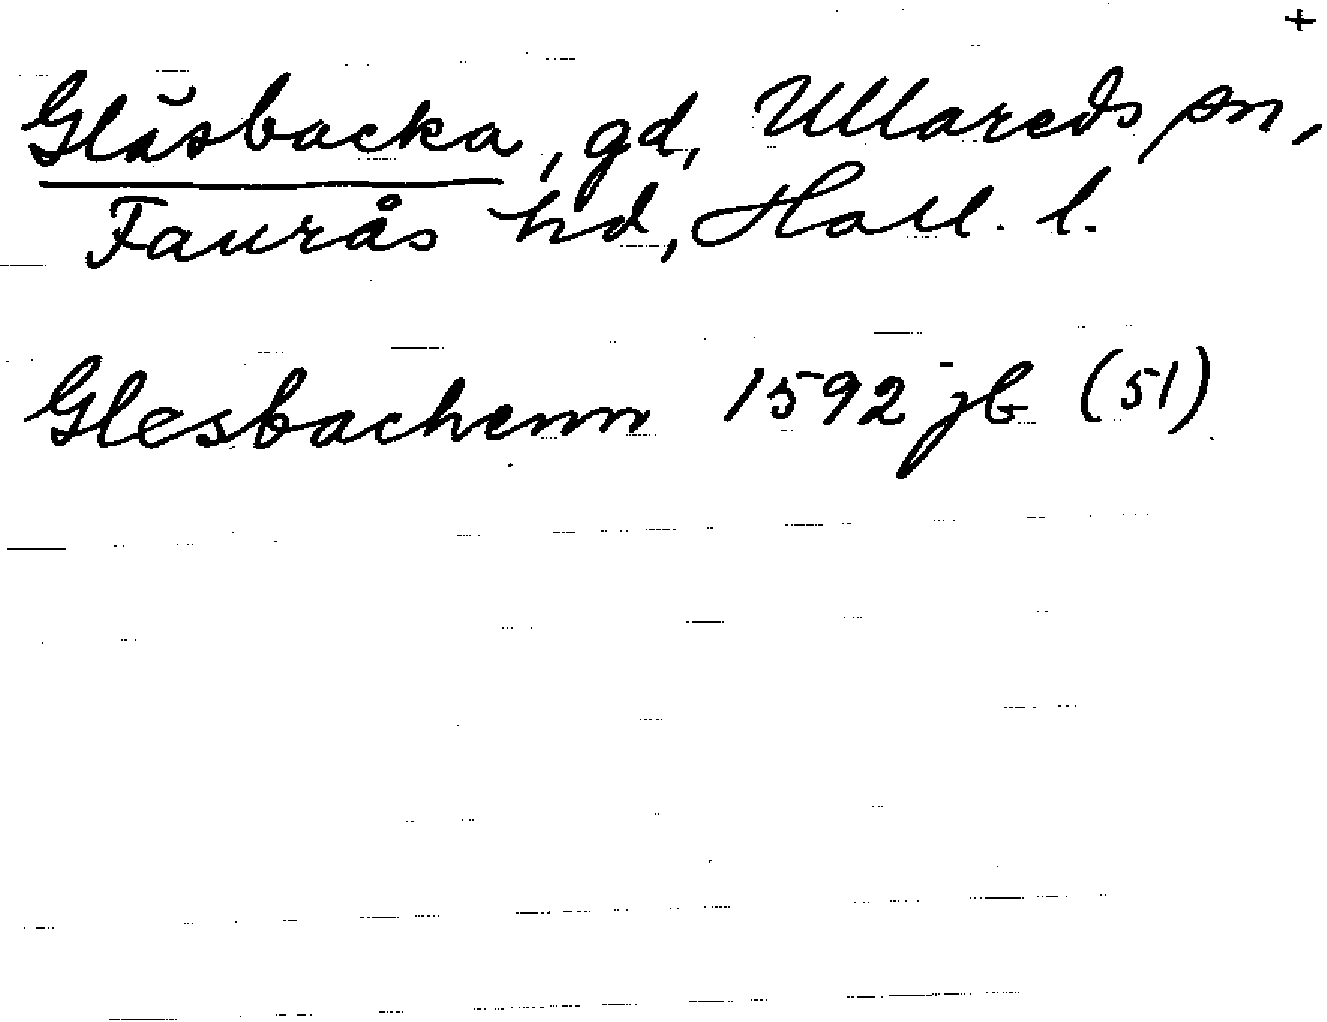 +
Gläsbacka, gd, Ullareds sn,
Faurås hd, Hall. l.
Glesbachenn 1592 jb (51)